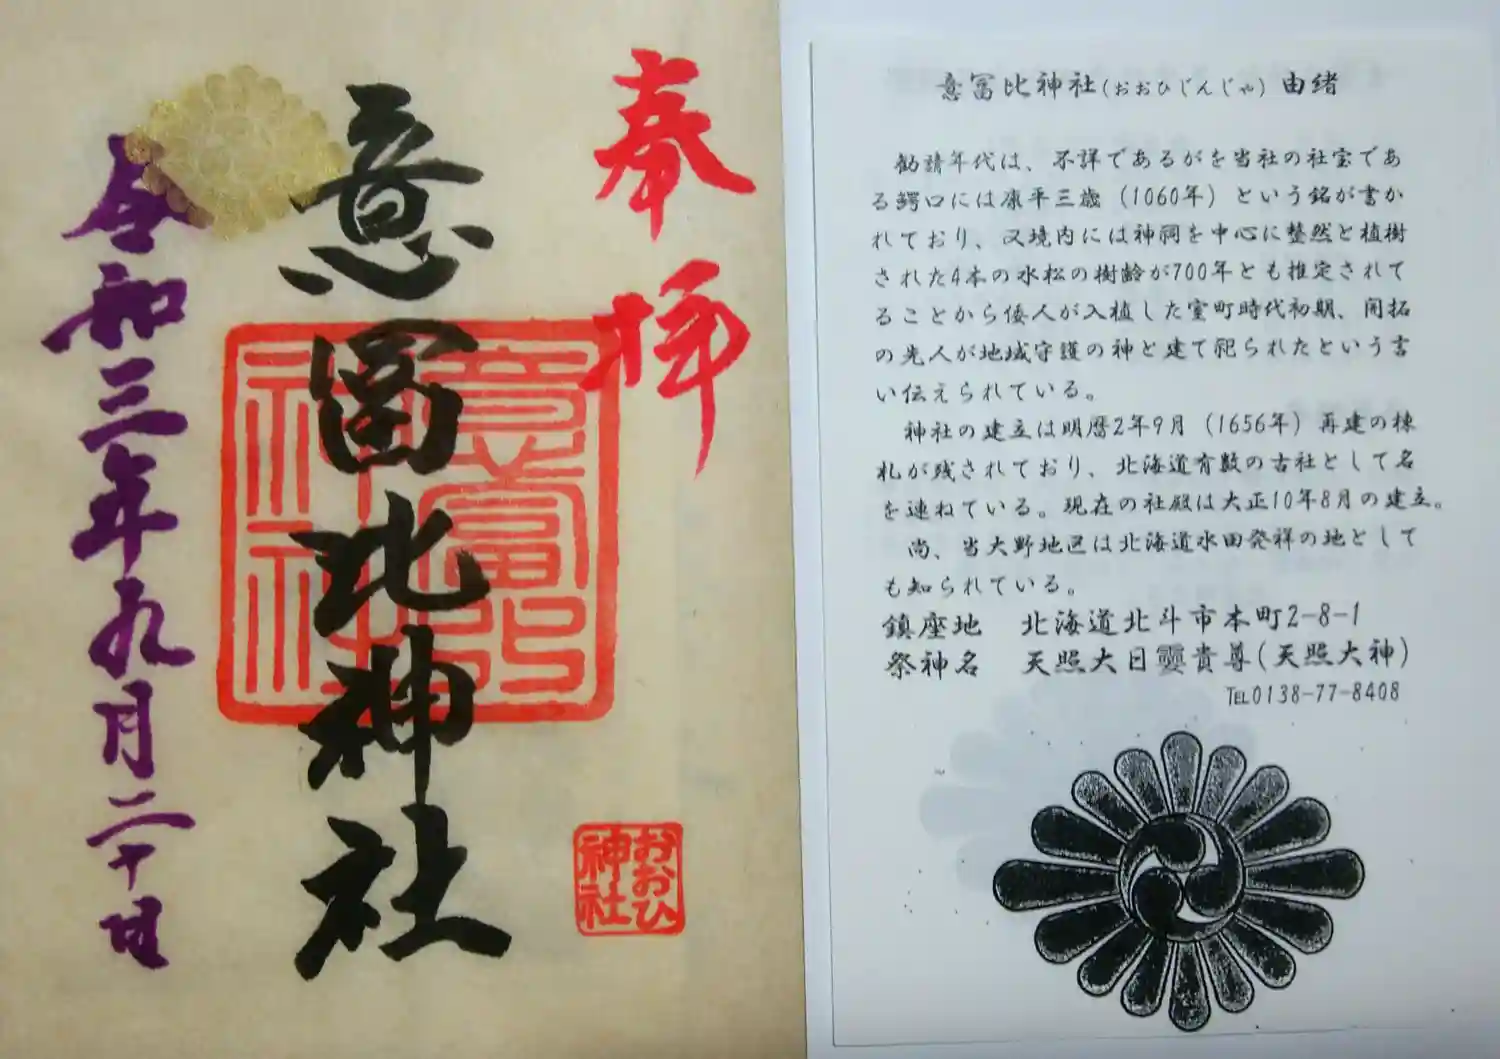 奉拝
意冨比神社
令和三年九月二十日
意富比神社
おおひ
神社
意冨比神社(おおひじんじゃ)由緒
勧請年代は、不詳であるがを当社の社宝であ
る鰐口には康平三歳（1060年）という銘が書か
れており、又境内には神祠を中心に整然と植樹
された4本の水松の樹齢が700年とも推定されて
ることから倭人が入植した室町時代初期、開拓
の先人が地域守護の神と建て祀られたという言
い伝えられている。
神社の建立は明暦2年9月（1656年）再建の棟
札が残されており、北海道有数の古社として名
を連ねている。現在の社殿は大正10年8月の建立。
尚、当大野地区は北海道水田発祥の地として
も知られている。
鎮座地　北海道北斗市本町2-8-1
祭神名　天照大日孁貴尊(天照大神)
℡0138-77-8408